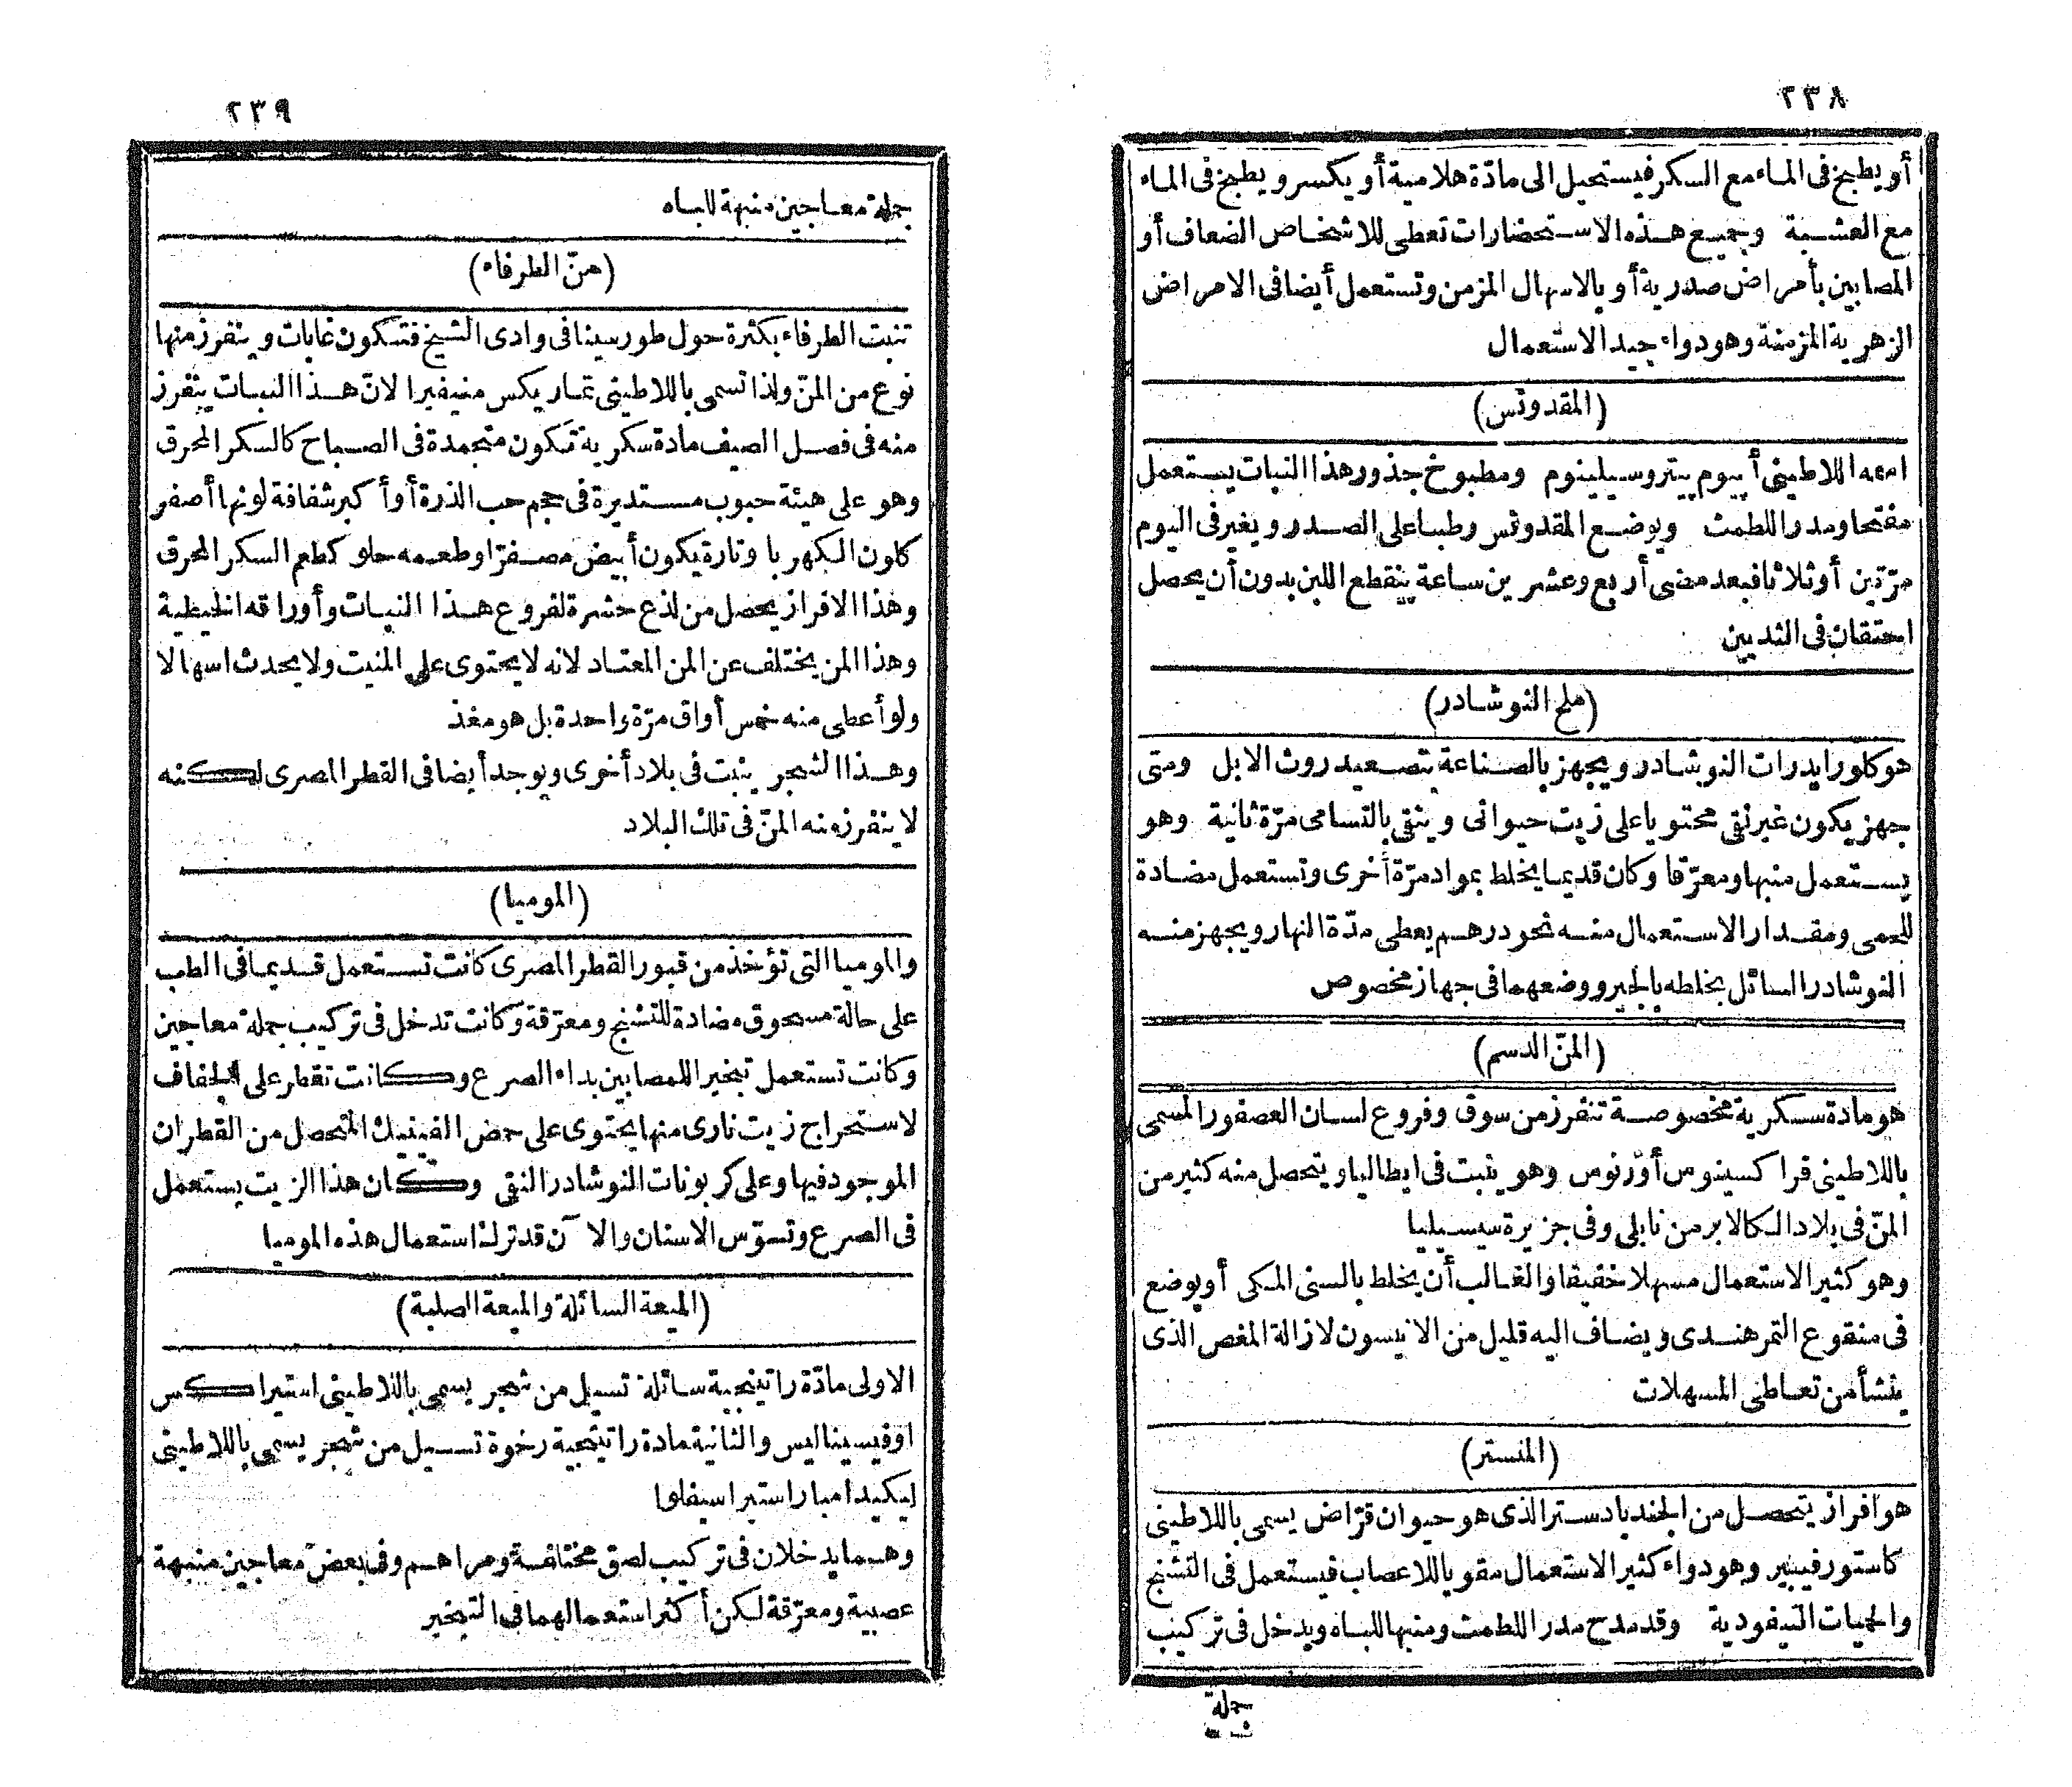 ٢٣٨
أو يطبخ فى الماء مع السكر فيستحيل الى مادّة هلامية أو يكسر ويطبخ فى الماء
مع العشبة وجميع هذه الاستحضارات تعطى للاشخاص الضعاف أو
المصابين بأمراض صدرية أو بالاسهال المزمن وتستعمل أيضا فى الامراض
الزهرية المزمنة وهو دواء جيد الاستعمال
(المقدونس)
اسمه اللاطينى أپيوم پيتروسيلينوم ومطبوخ جذور هذا النبات يستعمل
مفتحا ومدر اللطمث ويوضع المقدونس رطبا على الصدر ويغير فى اليوم
مرّتين أو ثلاثا فبعد مضى أربع وعشرين ساعة ينقطع اللبن بدون أن يحصل
احتقان فى الثديين
(ملح النوشادر)
هو كلورايدرات النوشادر ويجهز بالصناعة بتصعيد روث الابل ومتى
جهز يكون غير نقى محتويا على زيت حيوانى وينقى بالتسامى مرّة ثانية وهو
يستعمل منبها ومعرّقا وكان قديما يخلط بمواد مرّة أخرى وتستعمل مضادة
للحمى ومقدار الاستعمال منه نحو درهم يعطى مدّة النهار ويجهز منه
النوشادر السائل بخلطه بالجير ووضعهما فى جهاز مخصوص
(المنّ الدسم)
هو مادة سكرية مخصوصة تنفرز من سوق وفروع لسان العصفور المسمى
باللاطينى فراكسينوس أورنوس وهو ينبت فى ايطاليا ويتحصل منه كثير من
المنّ فى بلاد الكالابر من نابلى وفى جزيرة سيسيليا
وهو كثير الاستعمال مسهلا خفيفا والغالب أن يخلط بالسنى المكى أو يوضع
فى منقوع التمر هندى ويضاف اليه قليل من الانيسون لازالة المغص الذى
ينشأ من تعاطى المسهلات
(المنستر)
هو افراز يتحصل من الجندبادستر الذى هو حيوان قرّاض يسمى باللاطينى
كاستورفيبير وهو دواء كثير الاستعمال مقويا للاعصاب فيستعمل فى التشنج
والحميات التيفودية وقد مدح مدر اللطمث ومنبها للباه ويدخل فى تركيب
جملة
٢٣٩
جملة معاجين منبهة للباه
(منّ الطرفاء)
تنبت الطرفاء بكثرة حول طورسينا فى وادى الشيخ فتتكون غابات وينفرز منها
نوع من المنّ ولذا تسمى باللاطينى تماريكس منيفيرا لانّ هذا النبات ينفرز
منه فى فصل الصيف مادة سكرية تكون متجمدة فى الصباح كالسكر المحرق
وهو على هيئة حبوب مستديرة فى حجم حب الذرة أو أكبر شفافة لونها أصفر
كلون الكهربا وتارة يكون أبيض مصفرّا وطعمه حلو كطعم السكر المحرق
وهذا الافراز يحصل من لذع حشرة لفروع هذا النبات وأوراقه الخيطية
وهذا المن يختلف عن المن المعتاد لانه لا يحتوى على المنيت ولا يحدث اسهالا
ولو أعطى منه خمس أواق مرّة واحدة بل هو مغذ
وهذا الشجر ينبت فى بلاد أخرى ويوجد أيضا فى القطر المصرى لكنه
لا ينفرز منه المنّ فى تلك البلاد
(الموميا)
والموميا التى تؤخذ من قبور القطر المصرى كانت تستعمل قديما فى الطب
على حالة مسحوق مضادة للتشنج ومعرّقة وكانت تدخل فى تركيب جملة معاجين
وكانت تستعمل تبخيرا للمصابين بداء الصرع وكانت تقطر على الجفاف
لاستخراج زيت نارى منها يحتوى على حمض الفينيك المتحصل من القطران
الموجود فيها وعلى كربونات النوشادر النقى وكان هذا الزيت يستعمل
فى الصرع وتسوّس الاسنان والآن قد ترك استعمال هذه الموميا
(الميعة السائلة والميعة الصلبة)
الاولى مادّة راتينجية سائلة تسيل من شجر يسمى باللاطينى استيراكس
اوفيسيناليس والثانية مادة راتينجية رخوة تسيل من شجر يسمى باللاطينى
ليكيدامبار استيراسيفلوا
وهما يدخلان فى تركيب لصق مختلفة ومراهم وفى بعض معاجين منبهة
عصبية ومعرّقة لكن أكثر استعمالهما فى التبخير